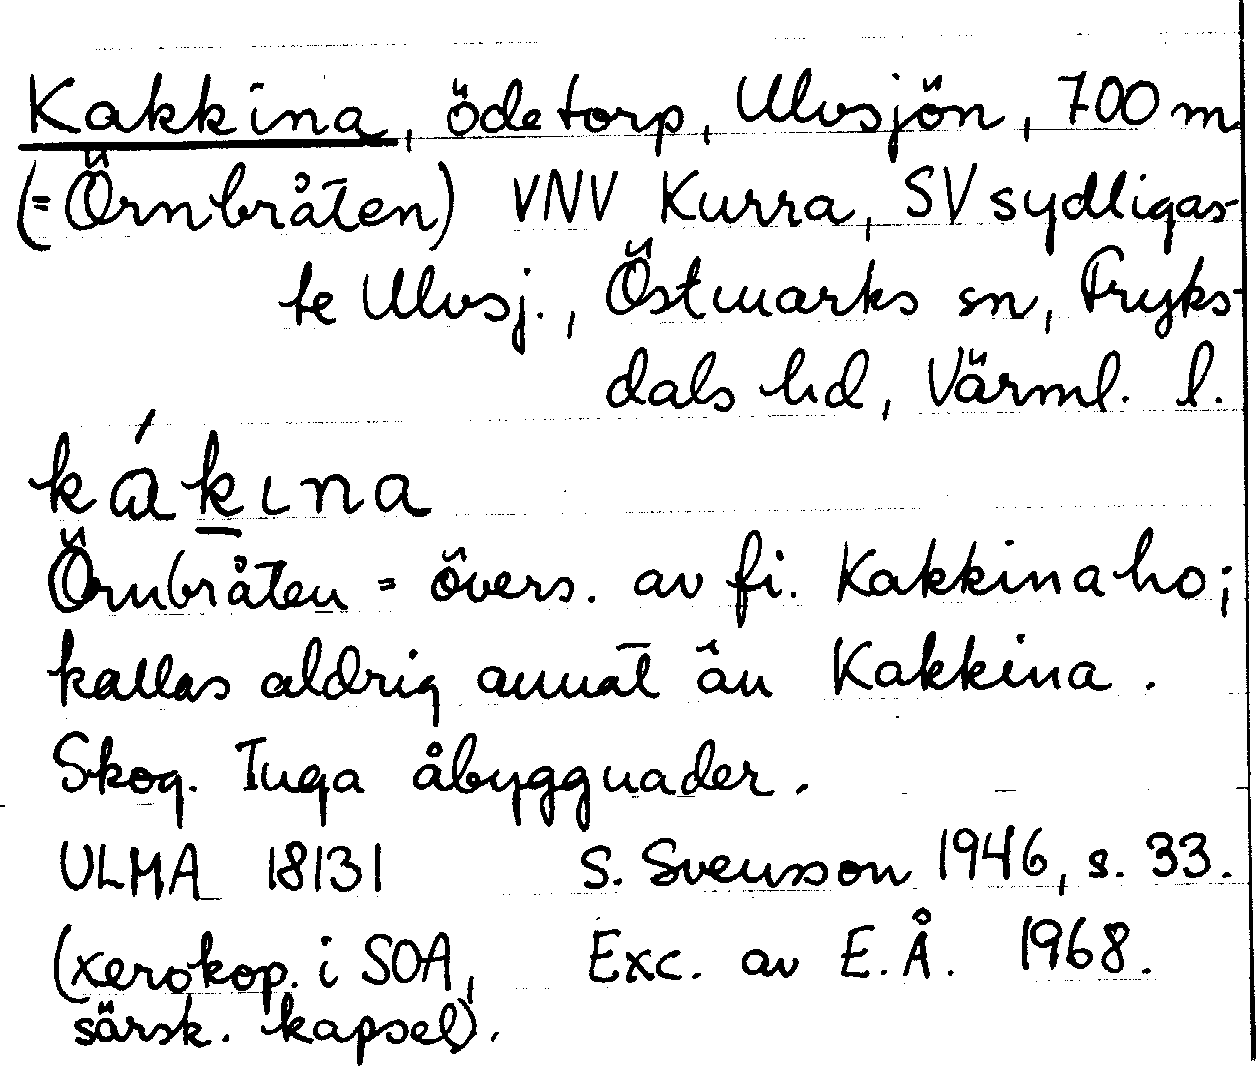 Kakkina, ödetorp, Ulvsjön, 700 m
(= Örnbråten) VNV Kurra, SV sydligas-
te Ulvsj., Östmarks sn, Fryks-
dals hd, Värml. l.
kákina
Örnbråten = övers. av fi. Kakkinaho;
kallas aldrig annat än Kakkina.
Skog. Inga åbyggnader.
ULMA 18131 S. Svensson 1946, s. 33.
(xerokop. i SOA, Exc. av E.Å. 1968.
särsk. kapsel).